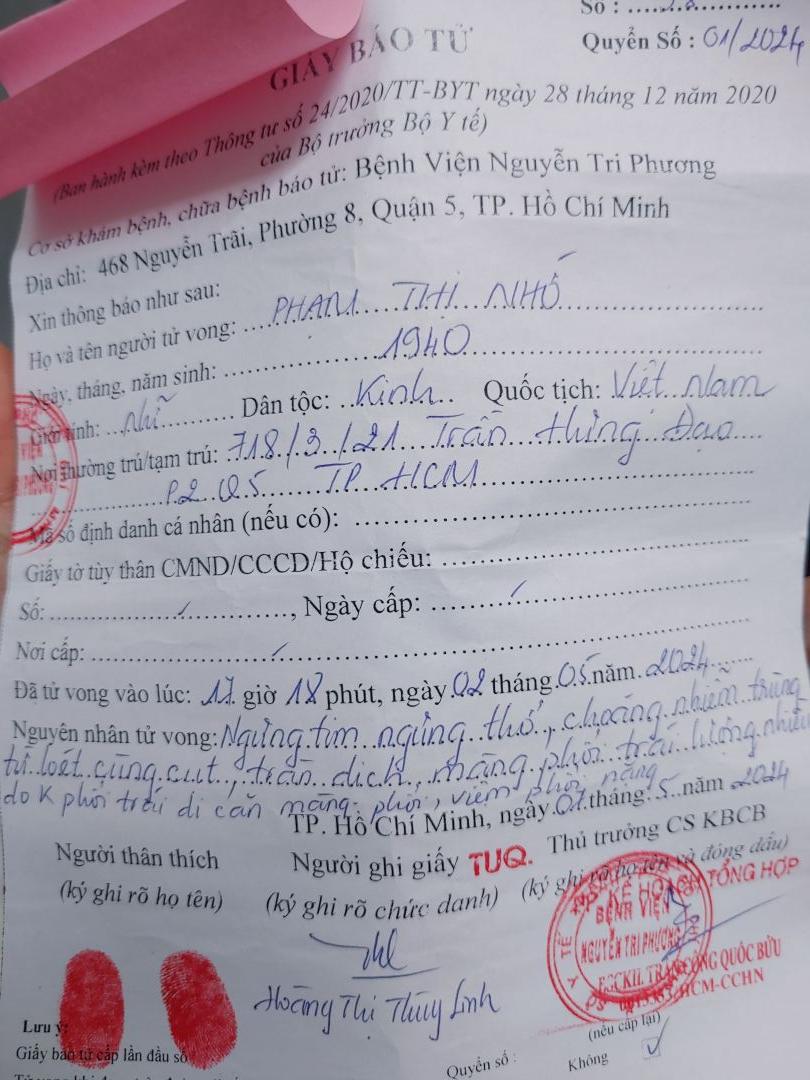 Số :
Quyển Số : 01/2024
GIẤY BÁO TỬ
(Ban hành kèm theo Thông tư số 24/2020/TT-BYT ngày 28 tháng 12 năm 2020
của Bộ trưởng Bộ Y tế)
Cơ sở khám bệnh, chữa bệnh báo tử: Bệnh Viện Nguyễn Tri Phương
Địa chỉ: 468 Nguyễn Trãi, Phường 8, Quận 5, TP. Hồ Chí Minh
Xin thông báo như sau:
Họ và tên người tử vong: PHẠM THỊ NHỎ
Ngày, tháng, năm sinh: 1940
Giới tính: Nữ Dân tộc: Kinh Quốc tịch: Việt Nam
Nơi thường trú/tạm trú: 718/3/21 Trần Hưng Đạo
P2 Q5 TP HCM
Mã số định danh cá nhân (nếu có):
Giấy tờ tùy thân CMND/CCCD/Hộ chiếu:
Số: / , Ngày cấp: /
Nơi cấp: /
Đã tử vong vào lúc: 17 giờ 18 phút, ngày 02 tháng 05 năm 2024
Nguyên nhân tử vong: Ngừng tim ngừng thở, choáng nhiễm trùng
từ loét cùng cụt, tràn dịch màng phổi trái lượng nhiều
do K phổi trái di căn màng phổi, viêm phổi nặng
TP. Hồ Chí Minh, ngày tháng 5 năm 2024
Người thân thích Người ghi giấy TUQ. Thủ trưởng CS KBCB
(ký ghi rõ họ tên) (ký ghi rõ chức danh) (ký ghi rõ họ tên và đóng dấu)
KẾ HOẠCH TỔNG HỢP
BỆNH VIỆN
NGUYỄN TRI PHƯƠNG
BSCKII. TRẦN CÔNG QUỐC BỬU
HCM-CCHN
Hoàng Thị Thùy Linh
Lưu ý:
Giấy báo tử cấp lần đầu số
Quyển số :
(nếu cấp lại)
Không ✓